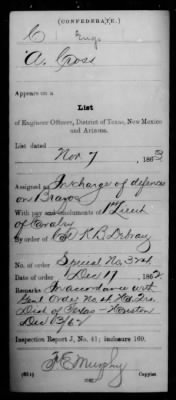 (CONFEDERATE.)
C Engs
A. Cross
Appears on a
List
of Engineer Officers, District of Texas, New Mexico
and Arizona.
List dated
Nov 7, 186
Assigned as In charge of defences
on Brazos
With pay and emoluments of 1st Lieut
of Cavalry
By order of Col X B Debray
No. of order Special No.
Dec 17, 1862
Remarks In accordance with
Genl Order No Hd Qrs
Dist of Texas Houston
Dec 13/62
Inspection Report J, No. 41; inclosure 169.
F. E. Murphy
Copyist.